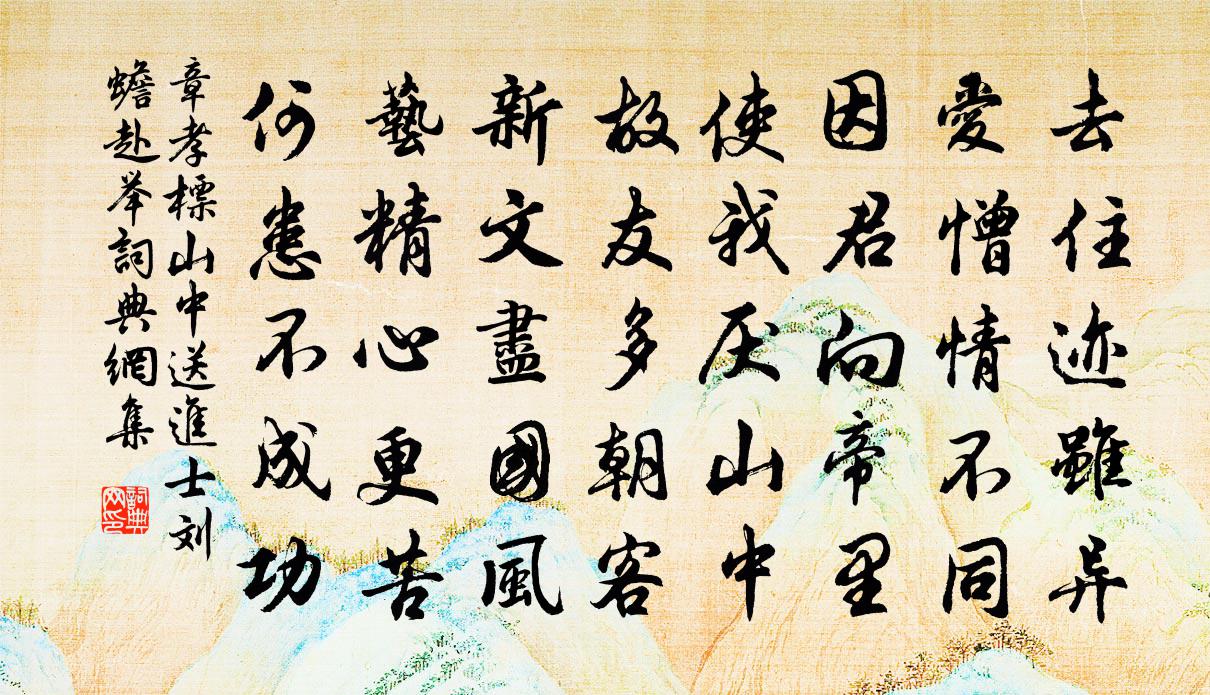 去住迹雖异
愛憎情不同
因君向帝里
使我厌山中
故友多朝客
新文盡國風
藝精心更苦
何患不成功
章孝標山中送進士刘
蟾赴举詞典網集
詞典网印